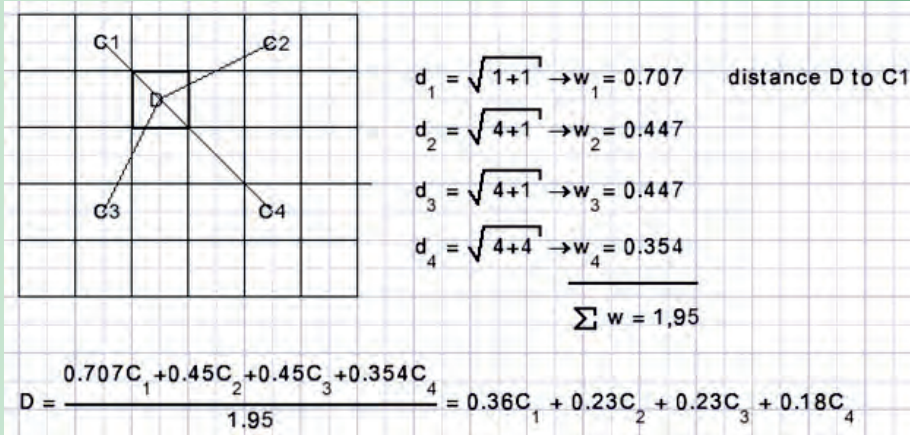 C1 C2
D
C3 C4
d₁ = √1+1 →w₁ = 0.707 distance D to C1
d₂ = √4+1 →w₂ = 0.447
d₃ = √4+1 →w₃ = 0.447
d₄ = √4+4 →w₄ = 0.354
∑ w = 1,95
0.707C₁+0.45C₂+0.45C₃+0.354C₄
D = = 0.36C₁ + 0.23C₂ + 0.23C₃ + 0.18C₄
1.95